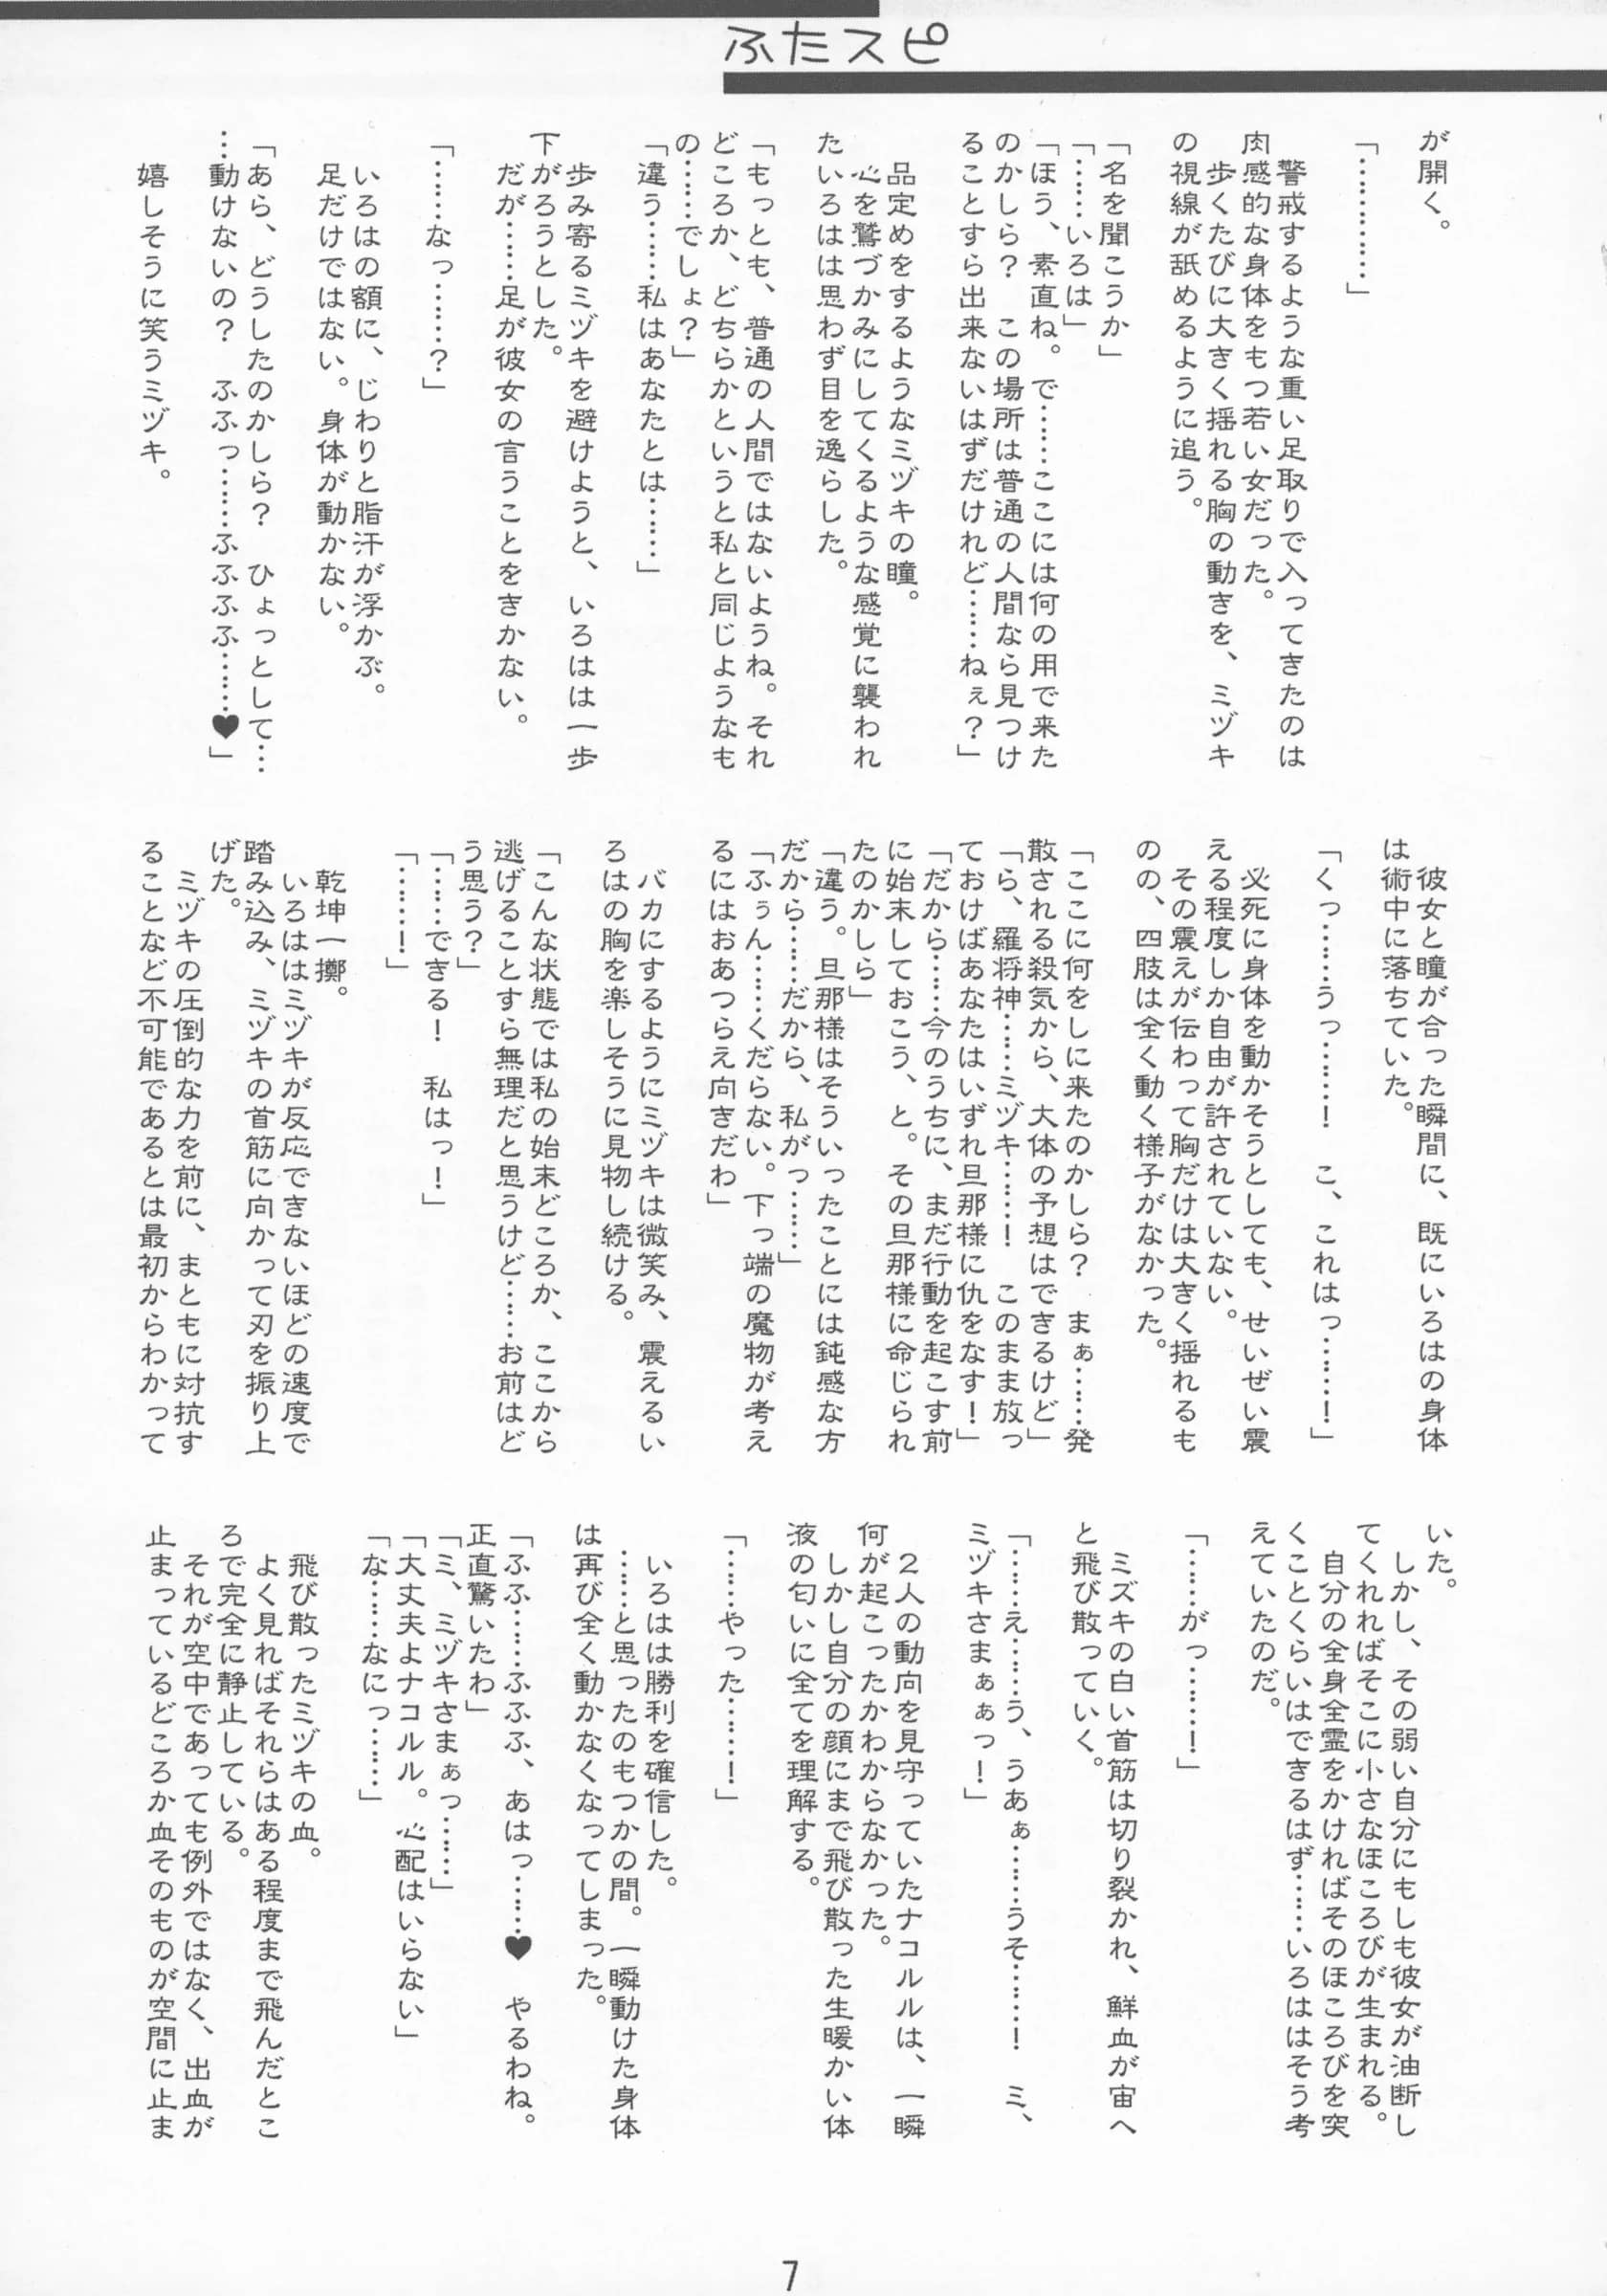 ふたスピ
が開く。
「…………」
警戒するような重い足取りで入ってきたのは
肉感的な身体をもつ若い女だった。
歩くたびに大きく揺れる胸の動きを、ミヅキ
の視線が舐めるように追う。
「名を聞こうか」
「……いろは」
「ほう、素直ね。で……ここには何の用で来た
のかしら？　この場所は普通の人間なら見つけ
ることすら出来ないはずだけれど……ねぇ？」
品定めをするようなミヅキの瞳。
心を鷲づかみにしてくるような感覚に襲われ
たいろはは思わず目を逸らした。
「もっとも、普通の人間ではないようね。それ
どころか、どちらかというと私と同じようなも
の……でしょ？」
「違う……私はあなたとは……」
歩み寄るミヅキを避けようと、いろはは一歩
下がろうとした。
だが……足が彼女の言うことをきかない。
「……なっ……？」
いろはの額に、じわりと脂汗が浮かぶ。
足だけではない。身体が動かない。
「あら、どうしたのかしら？　ひょっとして…
…動けないの？　ふふっ……ふふふふ……♥」
嬉しそうに笑うミヅキ。
彼女と瞳が合った瞬間に、既にいろはの身体
は術中に落ちていた。
「くっ……うっ……！　こ、これはっ……！」
必死に身体を動かそうとしても、せいぜい震
える程度しか自由が許されていない。
その震えが伝わって胸だけは大きく揺れるも
のの、四肢は全く動く様子がなかった。
「ここに何をしに来たのかしら？　まぁ……発
散される殺気から、大体の予想はできるけど」
「ら、羅将神……ミヅキ……！　このまま放っ
ておけばあなたはいずれ旦那様に仇をなす！」
「だから……今のうちに、まだ行動を起こす前
に始末しておこう、と。その旦那様に命じられ
たのかしら」
「違う。旦那様はそういったことには鈍感な方
だから……だから、私がっ……」
「ふぅん……くだらない。下っ端の魔物が考え
るにはおあつらえ向きだわ」
バカにするようにミヅキは微笑み、震えるい
ろはの胸を楽しそうに見物し続ける。
「こんな状態では私の始末どころか、ここから
逃げることすら無理だと思うけど……お前はど
う思う？」
「……できる！　私はっ！」
「……！」
乾坤一擲。
いろははミヅキが反応できないほどの速度で
踏み込み、ミヅキの首筋に向かって刃を振り上
げた。
ミヅキの圧倒的な力を前に、まともに対抗す
ることなど不可能であるとは最初からわかって
いた。
しかし、その弱い自分にもしも彼女が油断し
てくれればそこに小さなほころびが生まれる。
自分の全身全霊をかければそのほころびを突
くことくらいはできるはず……いろははそう考
えていたのだ。
「……がっ……！」
ミズキの白い首筋は切り裂かれ、鮮血が宙へ
と飛び散っていく。
「……え……う、うあぁ……うそ……！　ミ、
ミヅキさまぁぁっ！」
２人の動向を見守っていたナコルルは、一瞬
何が起こったかわからなかった。
しかし自分の顔にまで飛び散った生暖かい体
液の匂いに全てを理解する。
「……やった……！」
いろはは勝利を確信した。
……と思ったのもつかの間。一瞬動けた身体
は再び全く動かなくなってしまった。
「ふふ……ふふふ、あはっ……♥　やるわね。
正直驚いたわ」
「ミ、ミヅキさまぁっ……」
「大丈夫よナコルル。心配はいらない」
「な……なにっ……」
飛び散ったミヅキの血。
よく見ればそれらはある程度まで飛んだとこ
ろで完全に静止している。
それが空中であっても例外ではなく、出血が
止まっているどころか血そのものが空間に止ま
7